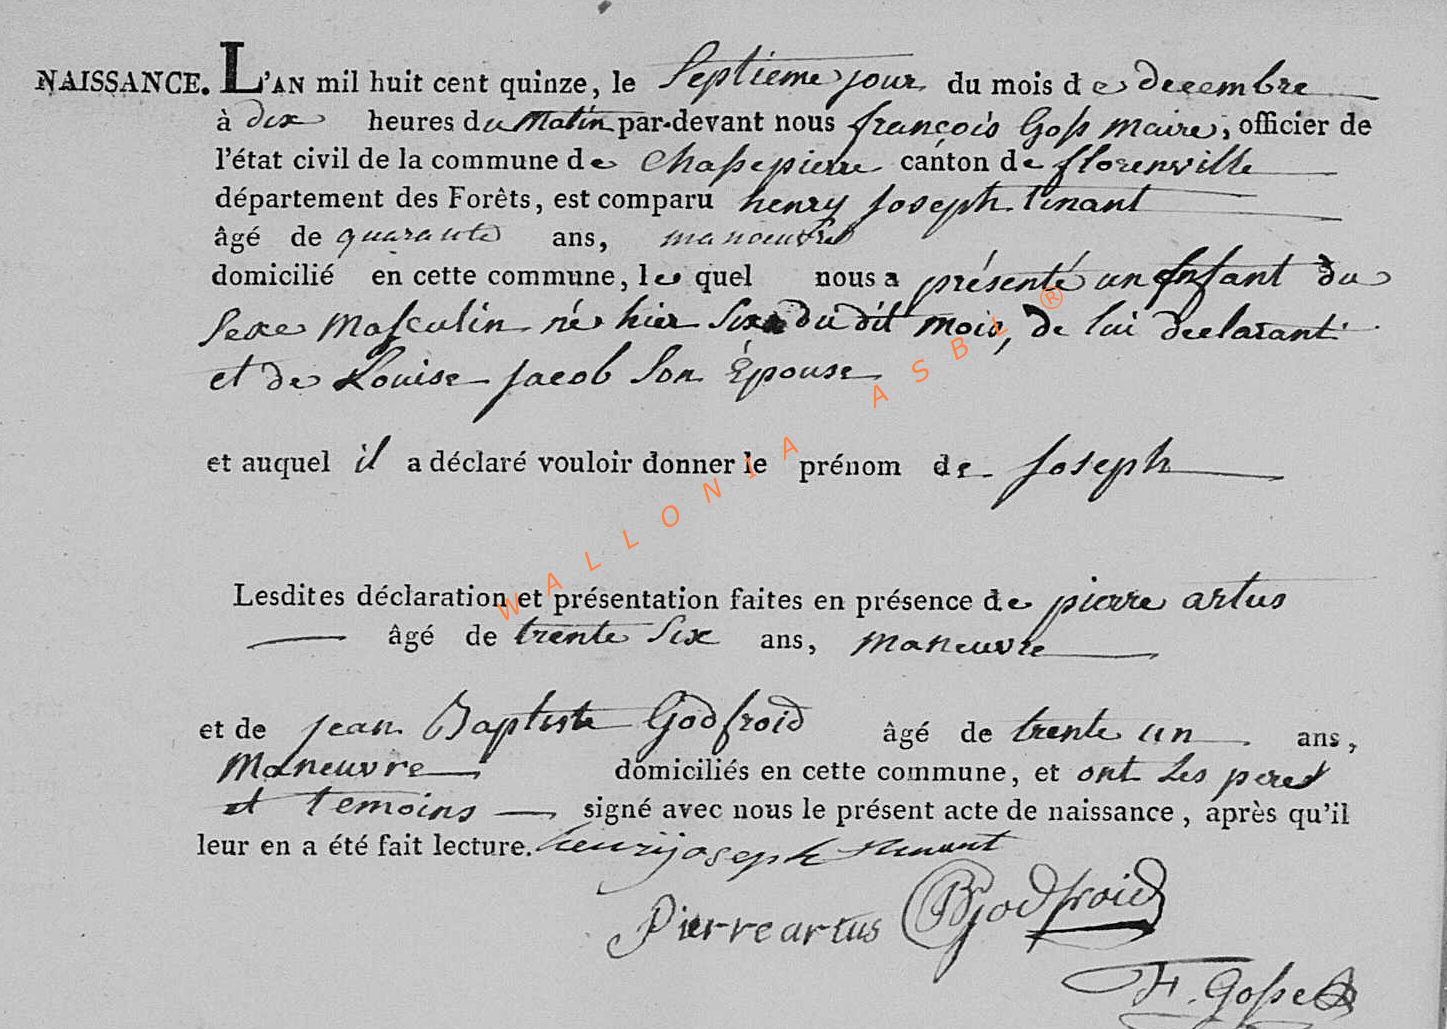 NAISSANCE. L'AN mil huit cent quinze, le Septieme jour du mois de decembre
à dix heures du Matin par-devant nous françois Goss maire, officier de
l'état civil de la commune de Chassepierre canton de florenville
département des Forêts, est comparu henry Joseph tinant
âgé de quarante ans, manoeuvre
domicilié en cette commune, le quel nous a présenté un Enfant du
Sexe Masculin né hier Six du dit mois, de lui declarant
et de Louise Jacob Son Épouse
et auquel il a déclaré vouloir donner le prénom de Joseph
Lesdites déclaration et présentation faites en présence de pierre artus
âgé de trente Six ans, Maneuvre
et de jean Baptiste Godfroid âgé de trente un ans,
Maneuvre domiciliés en cette commune, et ont Les peres
et temoins signé avec nous le présent acte de naissance, après qu'il
leur en a été fait lecture. henry joseph tinant
Pierre artus JBGodfroid
F. Gosse
WALLONIA ASBL ®